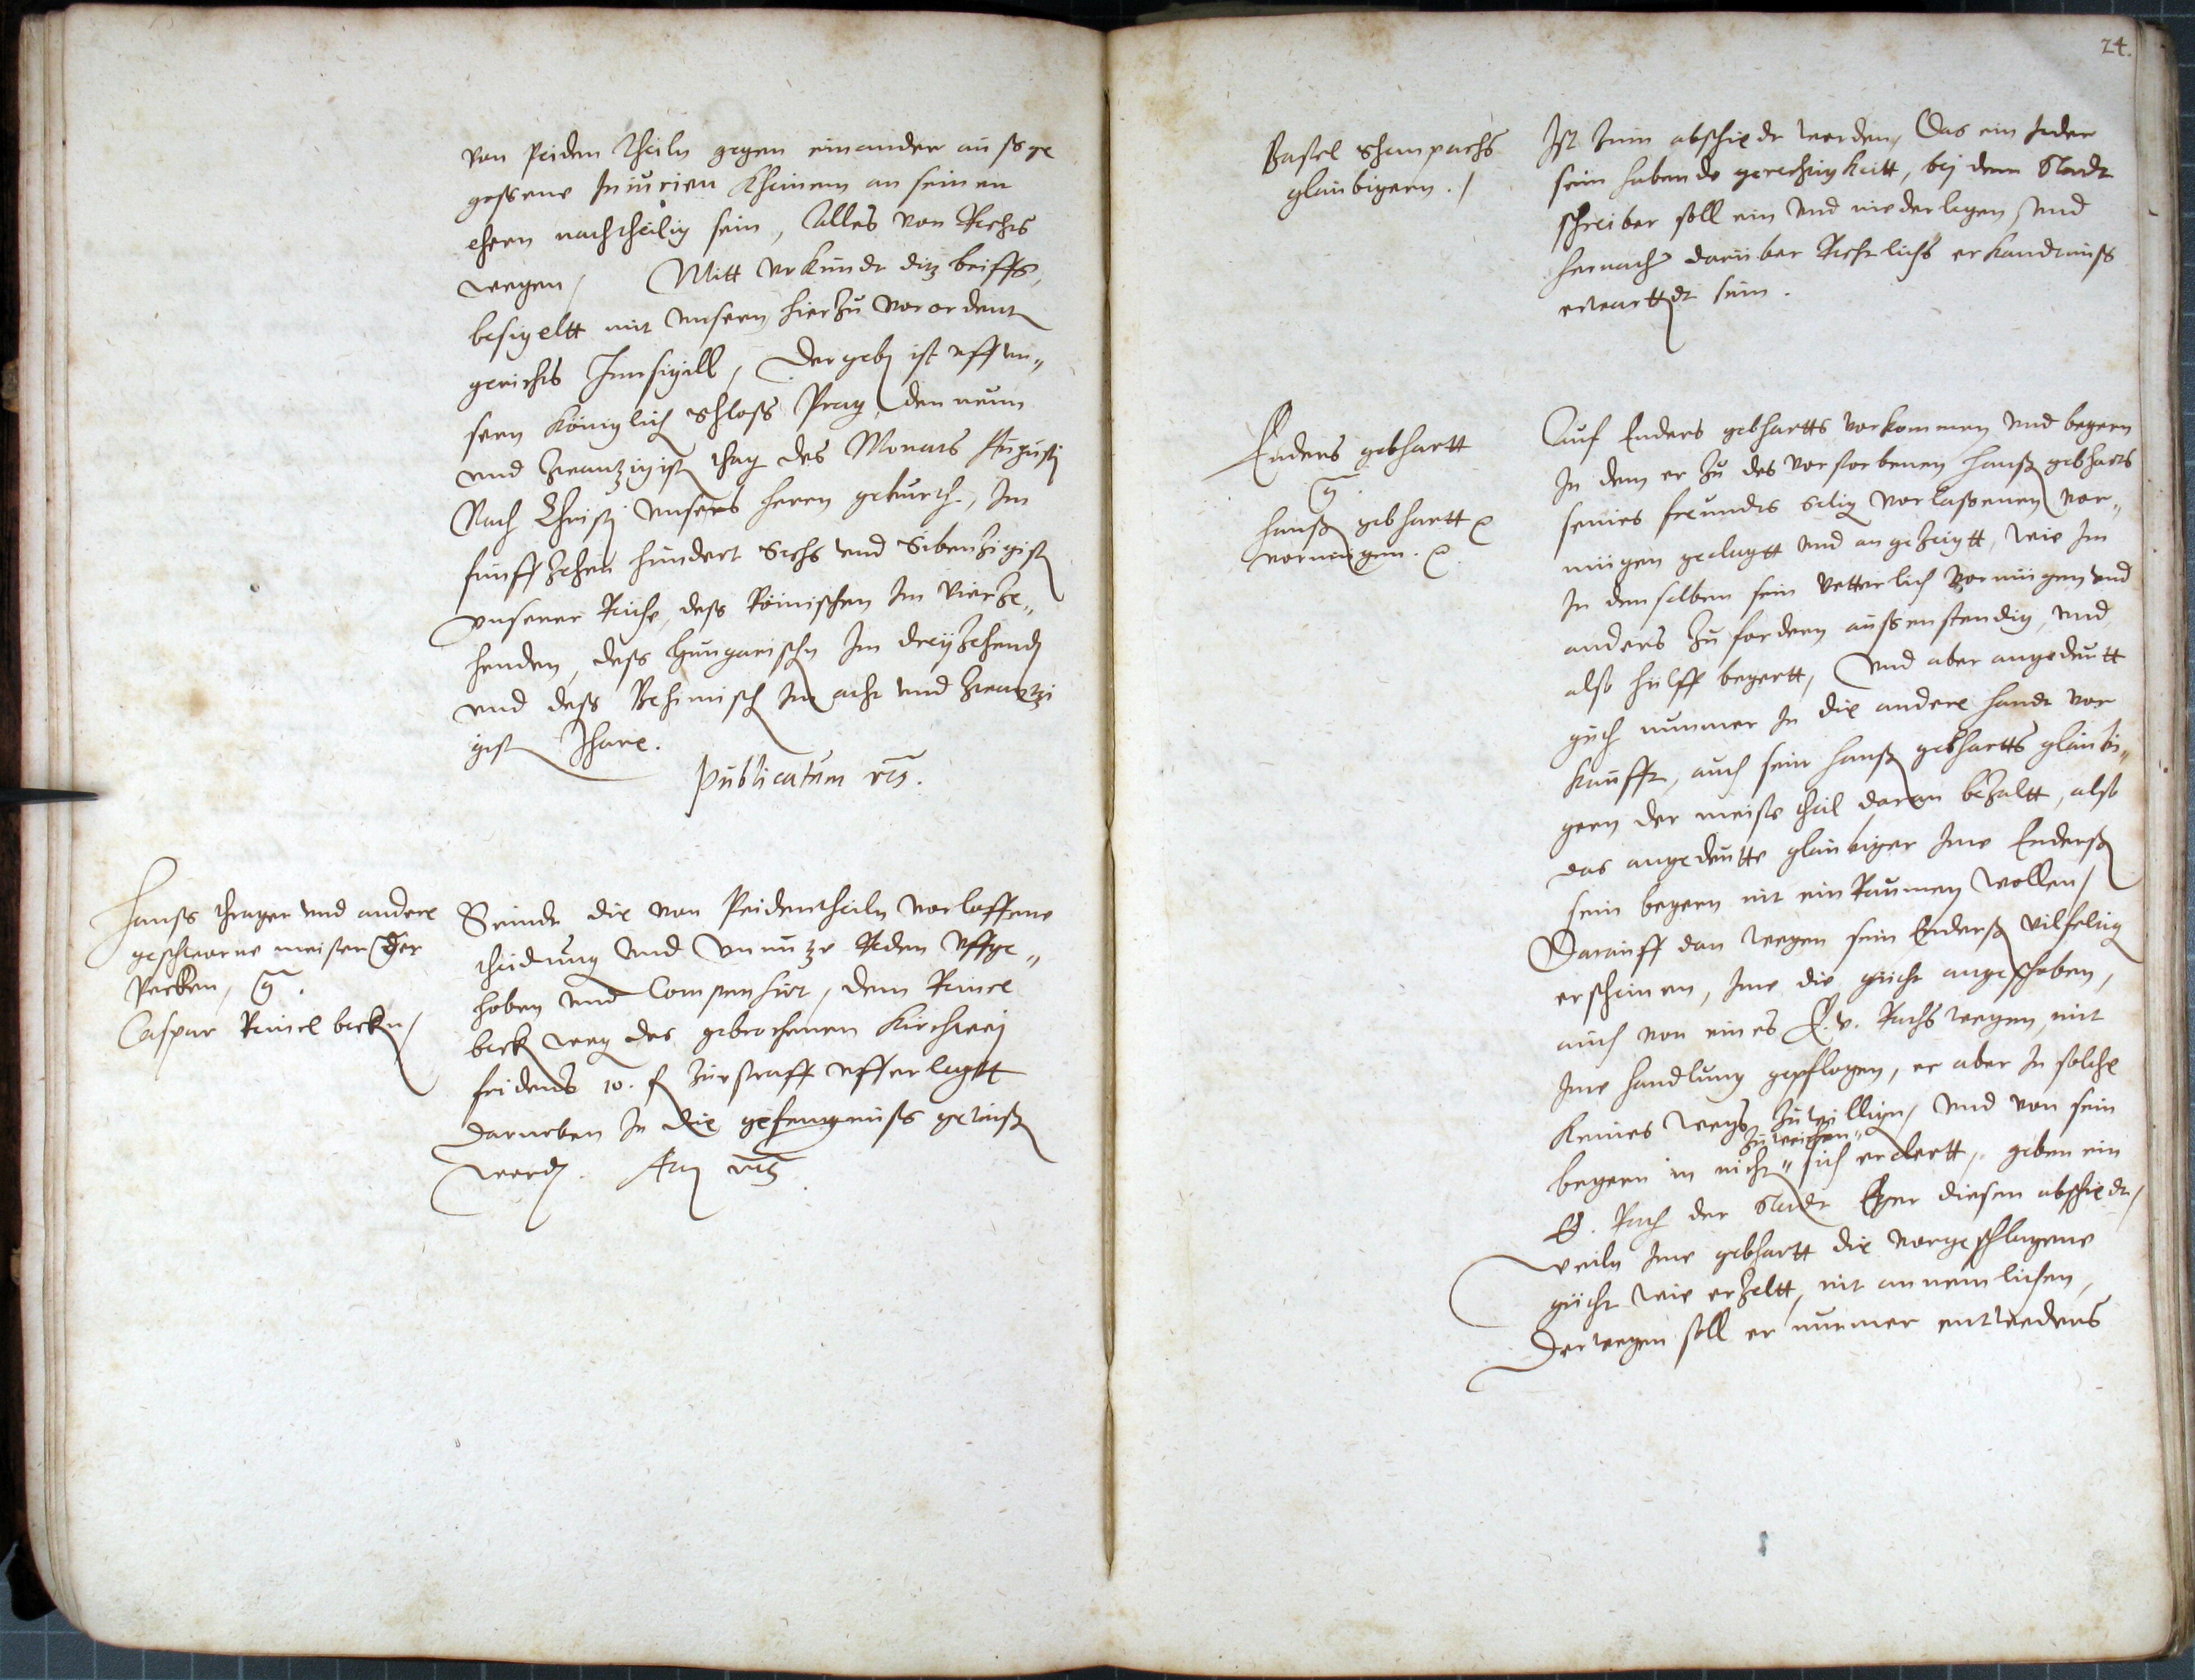 von Peiden Theiln gegen einander außge
goßene Iniurien Kheinem an seinen
ehern nachtheilig sein, Alles von Rechts
wegen / Mitt Urkundt ditz briffs,
besigeltt mit unserm hierzu verordent
gerichts Innsigill, Der geben ist uff un„
serm Königlich Schloß Prag, den neun
und Zwantzigist tag des Monats Augusti
Nach Christi unsers herrn geburth, Im
funffzehen hundert Sechs und Sibenzigist
unserer Reiche, deß Römischen Im Vierze„
henden, deß Hungarischn Im dreyzehend
und deß Behemisch Im acht und Zwantzi
gist Ihare.
Publicatum
Hanß Trager und andere
geschworne meister der
Pecken,
Caspar Reincl beckn /
Seindt die von Peidentheiln verloffene
theidung und unnutze Reden uffge„
hoben und Compensirt, dem Reincl
beck weg des gebrochenen Kirchweij
fridens 10. f zur straff ufferlegtt
darneben In die gefengnuß geweißt
werd.
24.
Bastel Schampachs
gläubigern ./
Ist zum abschiedt worden, Das ein Jeder
sein habende gerechtigkeitt, bej dem Stadt
schreiber soll ein und niederlegen, und
hernach darüber Rechtlichs erkandtnuß
erwarttet sein.
Enders gebhartt
Hanß gebhartt
vermügen.
Auf Enders gebhartts vorkommen und begern
In dem er zu des verstorbenen Hanß gebharts
seines freundts Selig verlaßenen ver„
mügen geclagtt und angezeigtt, wie Im
In denselben sein Vetterlich Vermügen und
anders zu fordern außenstendig, und
also hülff begertt, Und aber angedeutt
gueth nunmer In die andere handt ver
kaufft, auch sein Hanß gebhartts gläubi„
gern der meiste theil daran bezaltt, also
das angedeutte gläubiger Ime Enderß
sein begern nit ein Raumen wollen /
Darauff dan wegen sein Enderß vilfeltig
erscheinen, Ime die güthe angeschoben,
auch von eines E. v. Raths wegen, mit
Ime handlung gepflogen, er aber In solche
Keines wegs zuwilligen, und von sein
zuweichen„
begern in nicht „ sich erclertt, geben ein
E. Rath der Stadt Eger diesen abschiedt /
weiln Ime gebhartt die vorgeschlagene
güthe wie erzeltt, nit annemlichen,
Derwegen soll er nunmer entweders